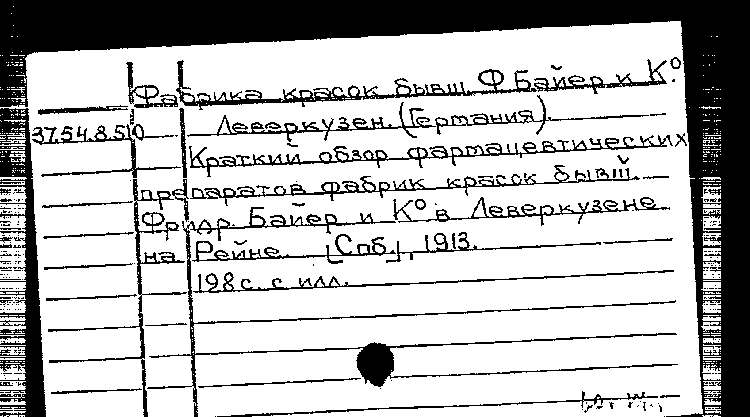 Фабрика красок бывш. Ф Байер и К°.
37.54.8.510 Леверкузен. (Германия).
Краткий обзор фармацевтических
препаратов фабрик красок бывш.
Фридр. Байер и К° в Леверкузене
на Рейне. [Спб.], 1913.
198 с. с илл.